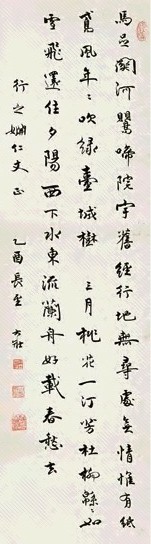 馬足關河鶯啼院宇舊經行地無尋處無情惟有紙
鳶風年々吹綠臺城樹 三月桃花一汀芳杜柳緜々如
雪飛還住夕陽西下水東流蘭舟好載春愁去
行之姻仁丈正
乙酉長至 大壯